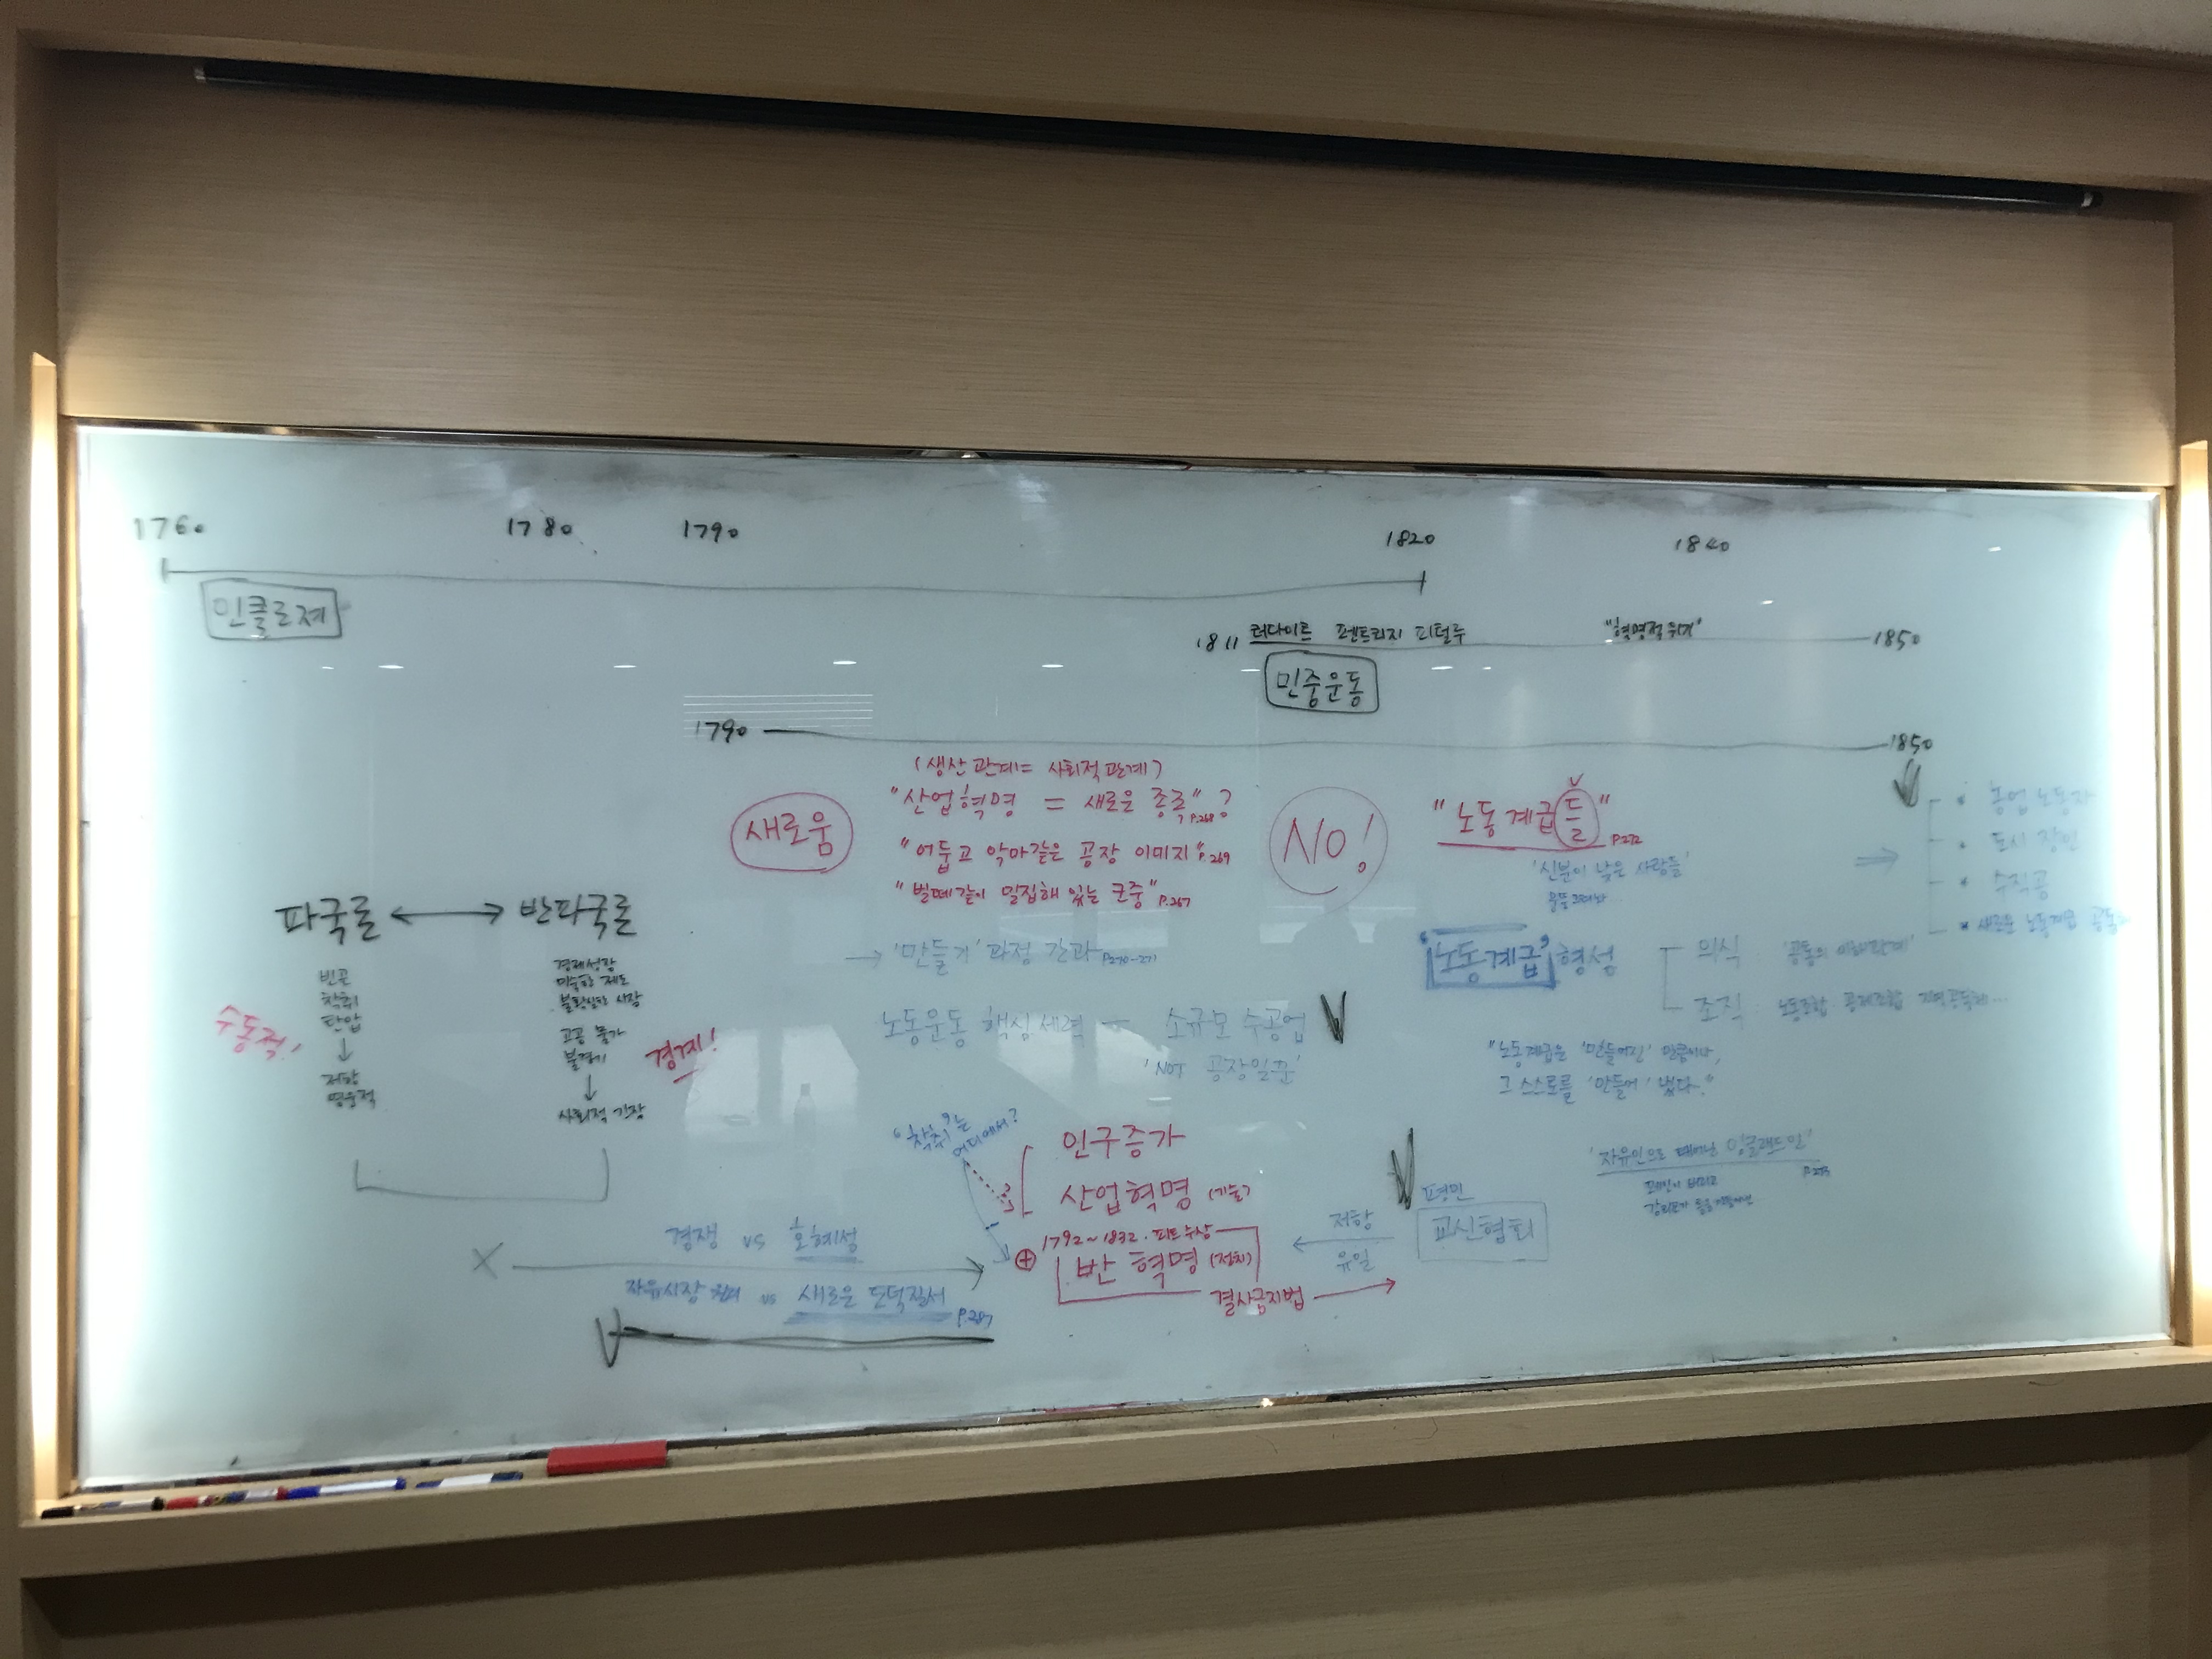 1760 1780 1790 1820 1840
인클로져
1811 러다이트 펜트리지 피털루 "혁명적 위기" 1850
민중운동
1790 1850
(생산관계 = 사회적 관계)
새로움
"산업혁명 = 새로운 종족"? P.268
"어둡고 악마같은 공장 이미지" P.269
"벌떼같이 밀집해 있는 군중" P.267
NO!
"노동계급들" P.272
'신분이 낮은 사람들'
농업 노동자
도시 장인
수직공
새로운 노동계급
→ '만들기' 과정 간과 P.270-271
노동운동 핵심세력 — 소규모 수공업
'NOT 공장일꾼'
'노동계급' 형성
의식 '공통의 이해관계'
조직 노동조합 공제조합
"노동계급은 '만들어진' 만큼이나,
그 스스로를 '만들어' 냈다."
파국론 ↔ 반파국론
빈곤
착취
탄압
↓
저항
영웅적
수동적!
경제성장
미숙한 제도
불확실한 시장
고공 물가
불경기
↓
사회적 긴장
경계!
"착취"는 어디에서?
인구증가
산업혁명 (기술)
⊕
1792~1832. 피트 수상
반혁명 (정치)
결사금지법 →
X
경쟁 vs 호혜성
자유시장 vs 새로운 도덕질서
P.287
저항
유일
평민
교신협회
'자유인으로 태어난 잉글랜드인'